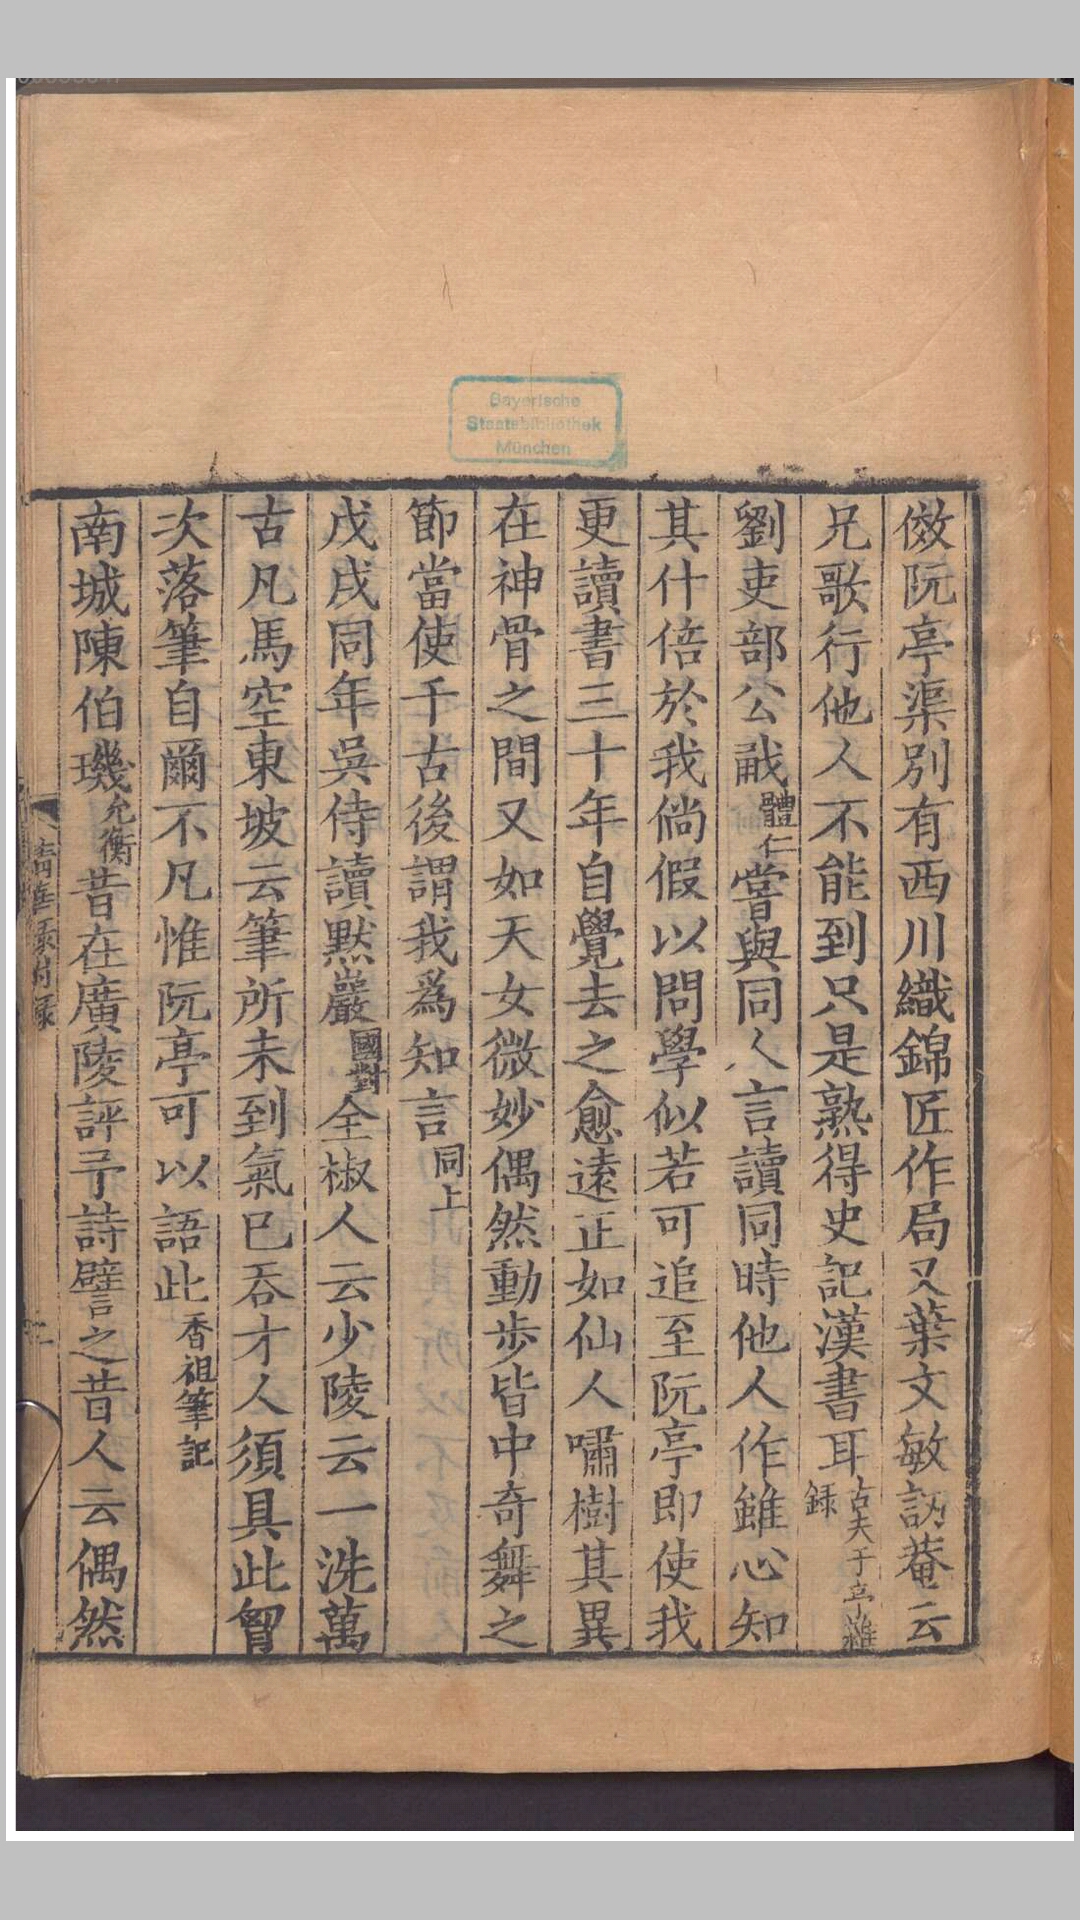 Bayerische
Staatsbibliothek
München
傚阮亭渠別有西川織錦匠作局又葉文敏訒菴云
兄歌行他人不能到只是熟得史記漢書耳古夫于亭雜錄
劉吏部公㦷體仁嘗與同人言讀同時他人作雖心知
其什倍於我倘假以問學似若可追至阮亭即使我
更讀書三十年自覺去之愈遠正如仙人嘯樹其異
在神骨之間又如天女微妙偶然動步皆中奇舞之
節當使千古後謂我爲知言同上
戊戌同年吳侍讀默巖國對全椒人云少陵云一洗萬
古凡馬空東坡云筆所未到氣已吞才人須具此胷
次落筆自爾不凡惟阮亭可以語此香祖筆記
南城陳伯璣允衡昔在廣陵評予詩譬之昔人云偶然